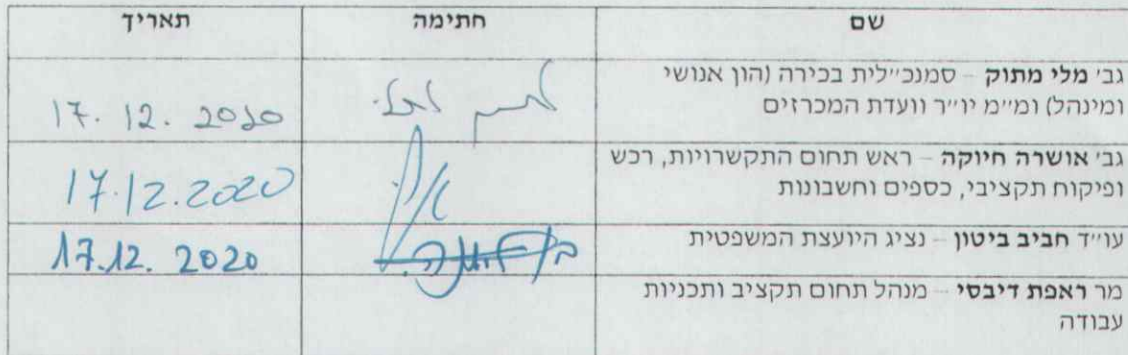 שם חתימה תאריך
גב׳ מלי מתוק – סמנכ״לית בכירה (הון אנושי
ומינהל) ומ״מ יו״ר וועדת המכרזים
17. 12. 2020
גב׳ אושרה חיוקה – ראש תחום התקשרויות, רכש
ופיקוח תקציבי, כספים וחשבונות
17.12.2020
עו״ד חביב ביטון – נציג היועצת המשפטית
17.12. 2020
מר ראפת דיבסי – מנהל תחום תקציב ותכניות
עבודה